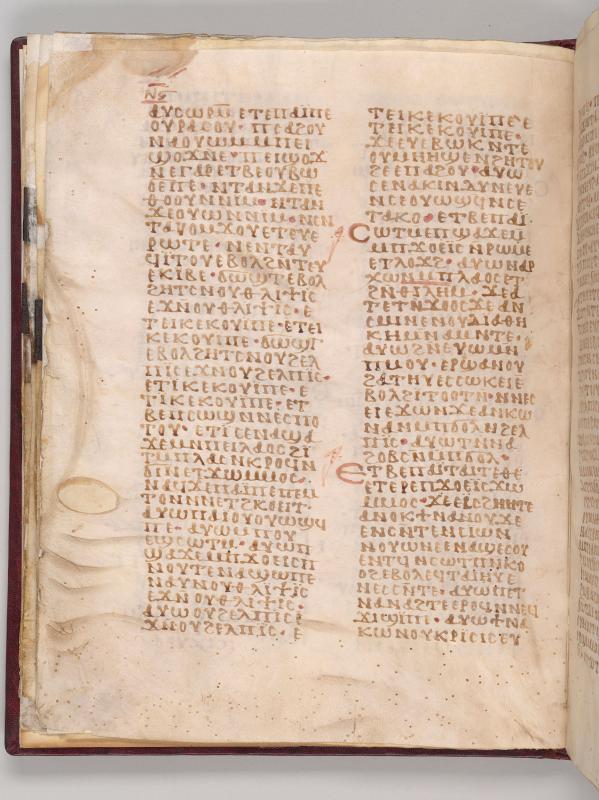 ⲛⲋ
ⲁⲩⲥⲱⲣⲙ̄ ⲉⲧⲉⲡⲁⲓ̈ⲡⲉ
ⲛⲁⲟⲩⲱⲙ ⲙⲡⲉⲓ
ϣⲟϫⲛⲉ · ⲡⲉⲓϣⲟϫ
ⲛⲉⲅⲁⲣ ⲉⲧⲃⲉⲟⲩⲃⲱ
ⲟⲉⲡⲉ · ⲛⲧⲁⲛϫⲉⲡⲉ
ⲑⲟⲟⲩⲛⲛⲓⲙ · ⲛⲧⲁⲛ
ϫⲉⲟⲩⲱⲛⲛⲓⲙ · ⲛⲉⲛ
ⲣⲱⲧⲉ · ⲛⲉⲛⲧⲁⲩ
ϥⲓⲧⲟⲩⲉⲃⲟⲗϩⲛⲧⲉⲩ
ⲉⲕⲓⲃⲉ · ϭⲱϣⲧⲉⲃⲟⲗ
ϩⲏⲧⲥⲛⲟⲩⲑⲗⲓⲯⲓⲥ
ⲉϫⲛⲟⲩⲑⲗⲓⲯⲓⲥ · ⲉ
ⲧⲉⲓⲕⲉⲕⲟⲩⲓⲡⲉ · ⲉⲧⲉⲓ
ⲕⲉⲕⲟⲩⲓⲡⲉ · ϭⲱϣⲧ
ⲉⲃⲟⲗϩⲏⲧⲥⲛⲟⲩϩⲉⲗ
ⲡⲓⲥⲉϫⲛⲟⲩϩⲉⲗⲡⲓⲥ ·
ⲉⲧⲓⲕⲉⲕⲟⲩⲓⲡⲉ · ⲉ
ⲧⲓⲕⲉⲕⲟⲩⲓⲡⲉ · ⲉⲧ
ⲃⲉⲡⲥⲱϣⲛⲛⲉⲥⲡⲟ
ⲧⲟⲩ · ⲉⲧⲓⲥⲉⲛⲁϣⲁ
ϫⲉⲙⲛⲡⲉⲓⲗⲁⲟⲥϩⲓ
ⲧⲙⲡⲗⲁⲥⲛⲕⲣⲟϥⲛ
ϭⲓⲛⲉⲧϫⲱⲙⲙⲟⲥ ·
ⲛⲁϥϫⲉⲡⲁⲓⲡⲉⲡⲉⲙ
ⲧⲟⲛⲛⲛⲉⲧϩⲕⲟⲉⲓⲧ ·
ⲁⲩⲱⲡⲁⲓⲟⲩⲟⲩⲱϣϥ
ⲡⲉ · ⲁⲩⲱⲙⲡⲟⲩ
ⲉϣⲥⲱⲧⲙ · ⲁⲩⲱⲡ
ϣⲁϫⲉⲙⲡϫⲟⲉⲓⲥⲡ
ⲛⲟⲩⲧⲉⲛⲁϣⲱⲡⲉ
ⲛⲁⲩⲛⲟⲩⲑⲗⲓⲯⲓⲥ
ⲉϫⲛⲟⲩⲑⲗⲓⲯⲓⲥ ·
ⲁⲩⲱⲟⲩϩⲉⲗⲡⲓⲥⲉ
ϫⲛⲟⲩϩⲉⲗⲡⲓⲥ · ⲉ
ⲧⲉⲓⲕⲉⲕⲟⲩⲓⲡⲉ · ⲉ
ⲧⲉⲓⲕⲉⲕⲟⲩⲓⲡⲉ ·
ϫⲉⲉⲩⲉⲃⲱⲕⲛⲧⲉ
ⲟⲩⲙⲏⲏϣⲉⲛϩⲏⲧⲟⲩ
ϩⲉⲉⲡⲁϩⲟⲩ · ⲁⲩⲱ
ⲥⲉⲛⲁⲕⲓⲛⲇⲩⲛⲉⲩⲉ
ⲛⲥⲉⲟⲩⲱϣϥⲛⲥⲉ
ⲧⲁⲕⲟ · ⲉⲧⲃⲉⲡⲁⲓ ·
ⲥⲱⲧⲙⲉⲡϣⲁϫⲉⲙ
ⲙⲡϫⲟⲉⲓⲥⲛⲣⲱⲙⲉ
ⲉⲧⲗⲟϫϩ · ⲁⲩⲱⲛⲁⲣ
ⲭⲱⲛⲙⲡⲗⲁⲟⲥⲉⲧ
ϩⲛⲑⲓⲗⲏⲙ · ϫⲉⲁ
ⲧⲉⲧⲛϫⲟⲟⲥϫⲉⲁⲛ
ⲥⲙⲓⲛⲉⲛⲟⲩⲇⲓⲁⲑⲏ
ⲕⲏⲙⲛⲁⲙⲛⲧⲉ ·
ⲁⲩⲱϩⲛⲥⲩⲛⲑⲏⲕⲏⲙⲛ
ⲡⲙⲟⲩ · ⲉⲣϣⲁⲛⲟⲩ
ϩⲁⲧⲏⲩⲉⲥⲥⲱⲕⲉⲓⲉ
ⲃⲟⲗϩⲓⲧⲟⲟⲧⲛ · ⲛⲛⲉⲥ
ⲉⲓⲉϫⲱⲛϫⲉⲁⲛⲕⲱ
ⲛⲁⲛⲙⲡϭⲟⲗⲛϩⲉⲗ
ⲡⲓⲥ · ⲁⲩⲱⲧⲛⲛⲁ
ϩⲱⲃⲥⲙⲡϭⲟⲗ ·
ⲉⲧⲃⲉⲡⲁⲓⲧⲁⲓⲧⲉⲑⲉ
ⲉⲧⲉⲣⲉⲡϫⲟⲉⲓⲥϫⲱ
ⲙⲙⲟⲥ · ϫⲉⲉⲓⲥϩⲏⲏⲧⲉ
ⲁⲛⲟⲕϯⲛⲁⲛⲟⲩϫⲉ
ⲉⲛⲥⲛⲧⲉⲛⲥⲓⲱⲛ
ⲛⲟⲩⲱⲛⲉⲉⲛⲁϣⲉⲥⲟⲩ
ⲉⲛⲧϥⲛⲥⲱⲧⲡⲛⲕⲟ
ⲟϩⲉⲃⲟⲗⲉϥⲧⲁⲓⲏⲩⲉ
ⲛⲉⲥⲥⲛⲧⲉ · ⲁⲩⲱⲡⲉⲧ
ⲛⲁⲛⲁϩⲧⲉⲉⲣⲟϥⲛⲛⲉϥ
ϫⲓϣⲓⲡⲉ · ⲁⲩⲱϯⲛⲁ
ⲕⲱⲛⲟⲩⲕⲣⲓⲥⲓⲥⲉⲩ